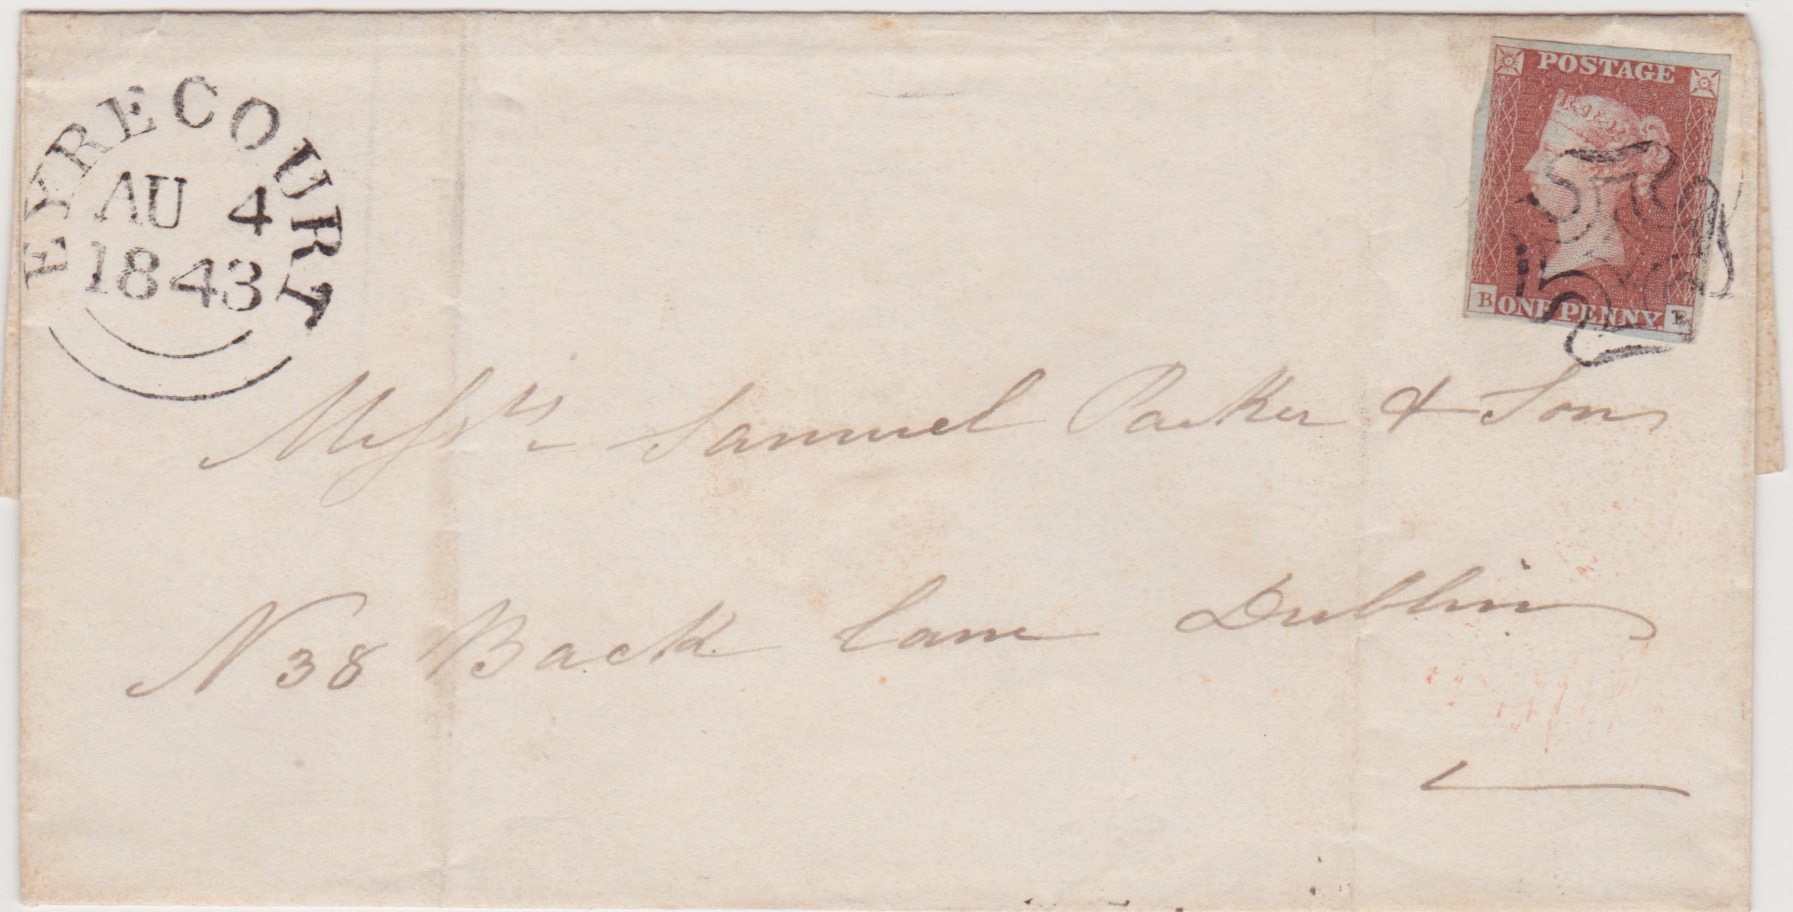 EYRECOURT
AU 4
1843
POSTAGE
B ONE PENNY E
Messrs Samuel Parker & Sons
N 38 Back Lane Dublin